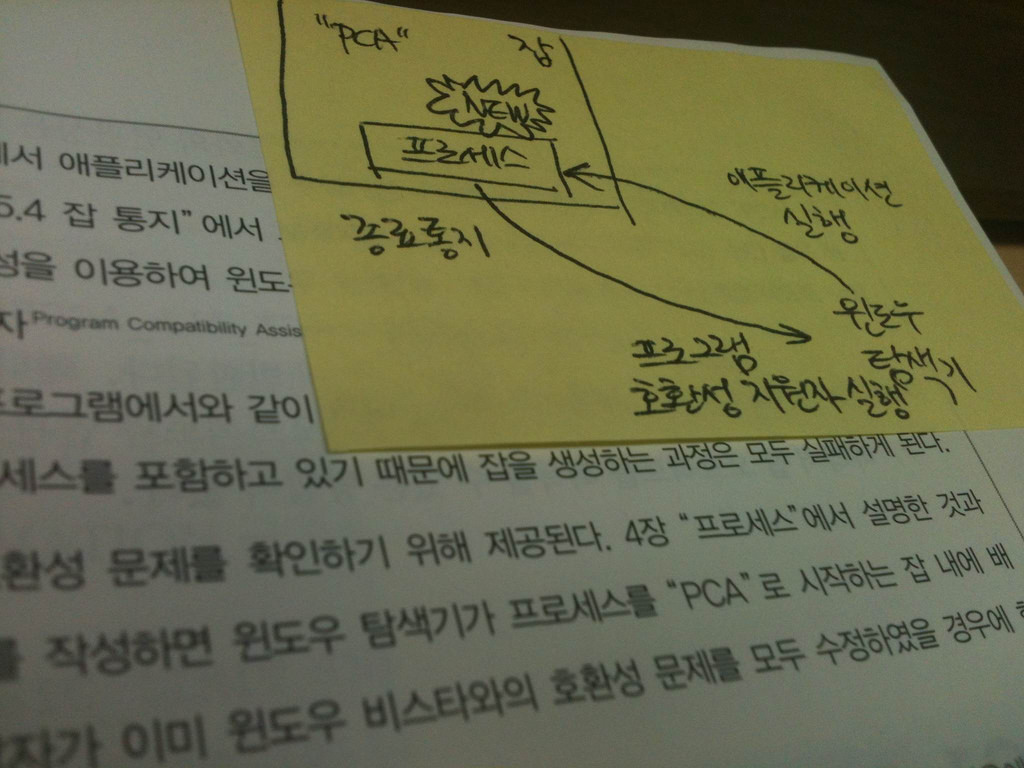 "PCA" 잡
NEW
프로세스
애플리케이션
실행
종료통지
윈도우
탐색기
프로그램
호환성 지원자 실행
에서 애플리케이션을
5.4 잡 통지"에서
성을 이용하여 윈도
자 Program Compatibility Assis
프로그램에서와 같이
세스를 포함하고 있기 때문에 잡을 생성하는 과정은 모두 실패하게 된다.
환성 문제를 확인하기 위해 제공된다. 4장 "프로세스"에서 설명한 것과
를 작성하면 윈도우 탐색기가 프로세스를 "PCA"로 시작하는 잡 내에 배
자가 이미 윈도우 비스타와의 호환성 문제를 모두 수정하였을 경우에